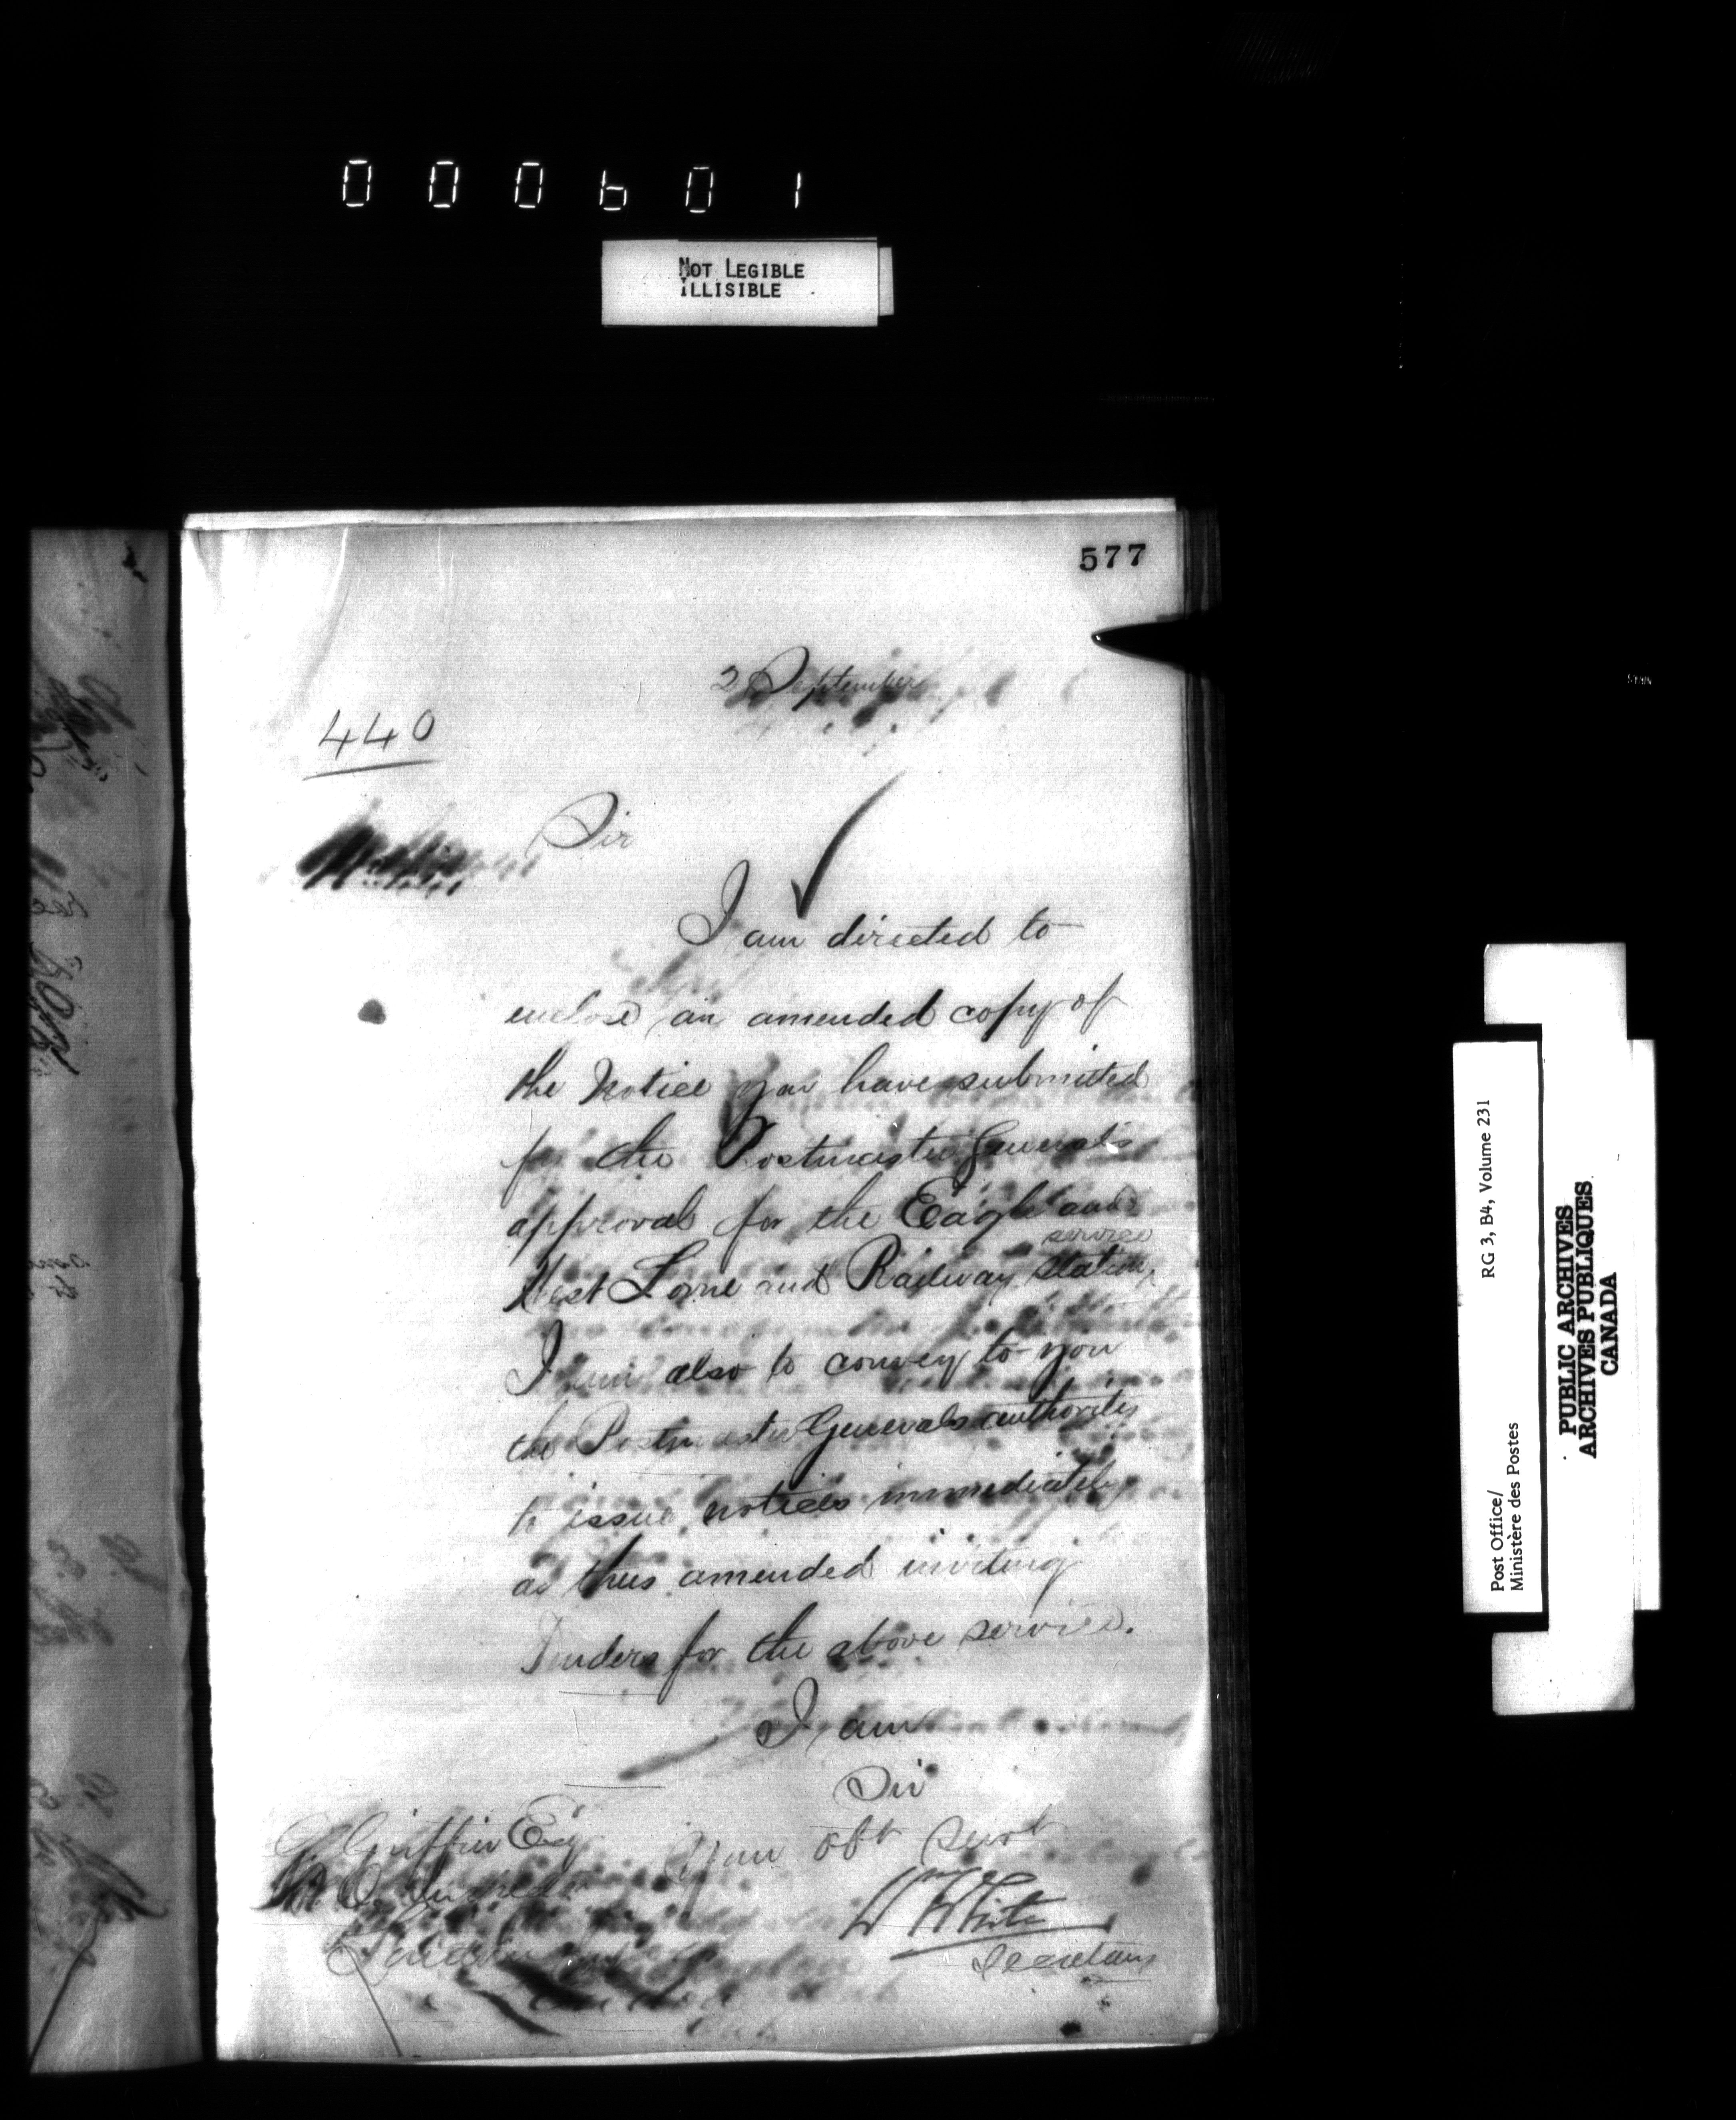 000601
NOT LEGIBLE
ILLISIBLE
577
2 September
440
Sir
I am directed to
enclose an amended copy of
the Notice you have submitted
for the Postmaster General's
approval for the Eagle and
service
West Lorne and Railway station
I am also to convey to you
the Postmaster Generals authority
to issue notices immediately
as thus amended inviting
Tenders for the above service.
I am
Sir
Your obt servt
Wm White
Secretary
Griffin Esq
P. O. Inspector
London
Post Office/
Ministère des Postes
RG 3, B4, Volume 231
PUBLIC ARCHIVES
ARCHIVES PUBLIQUES
CANADA